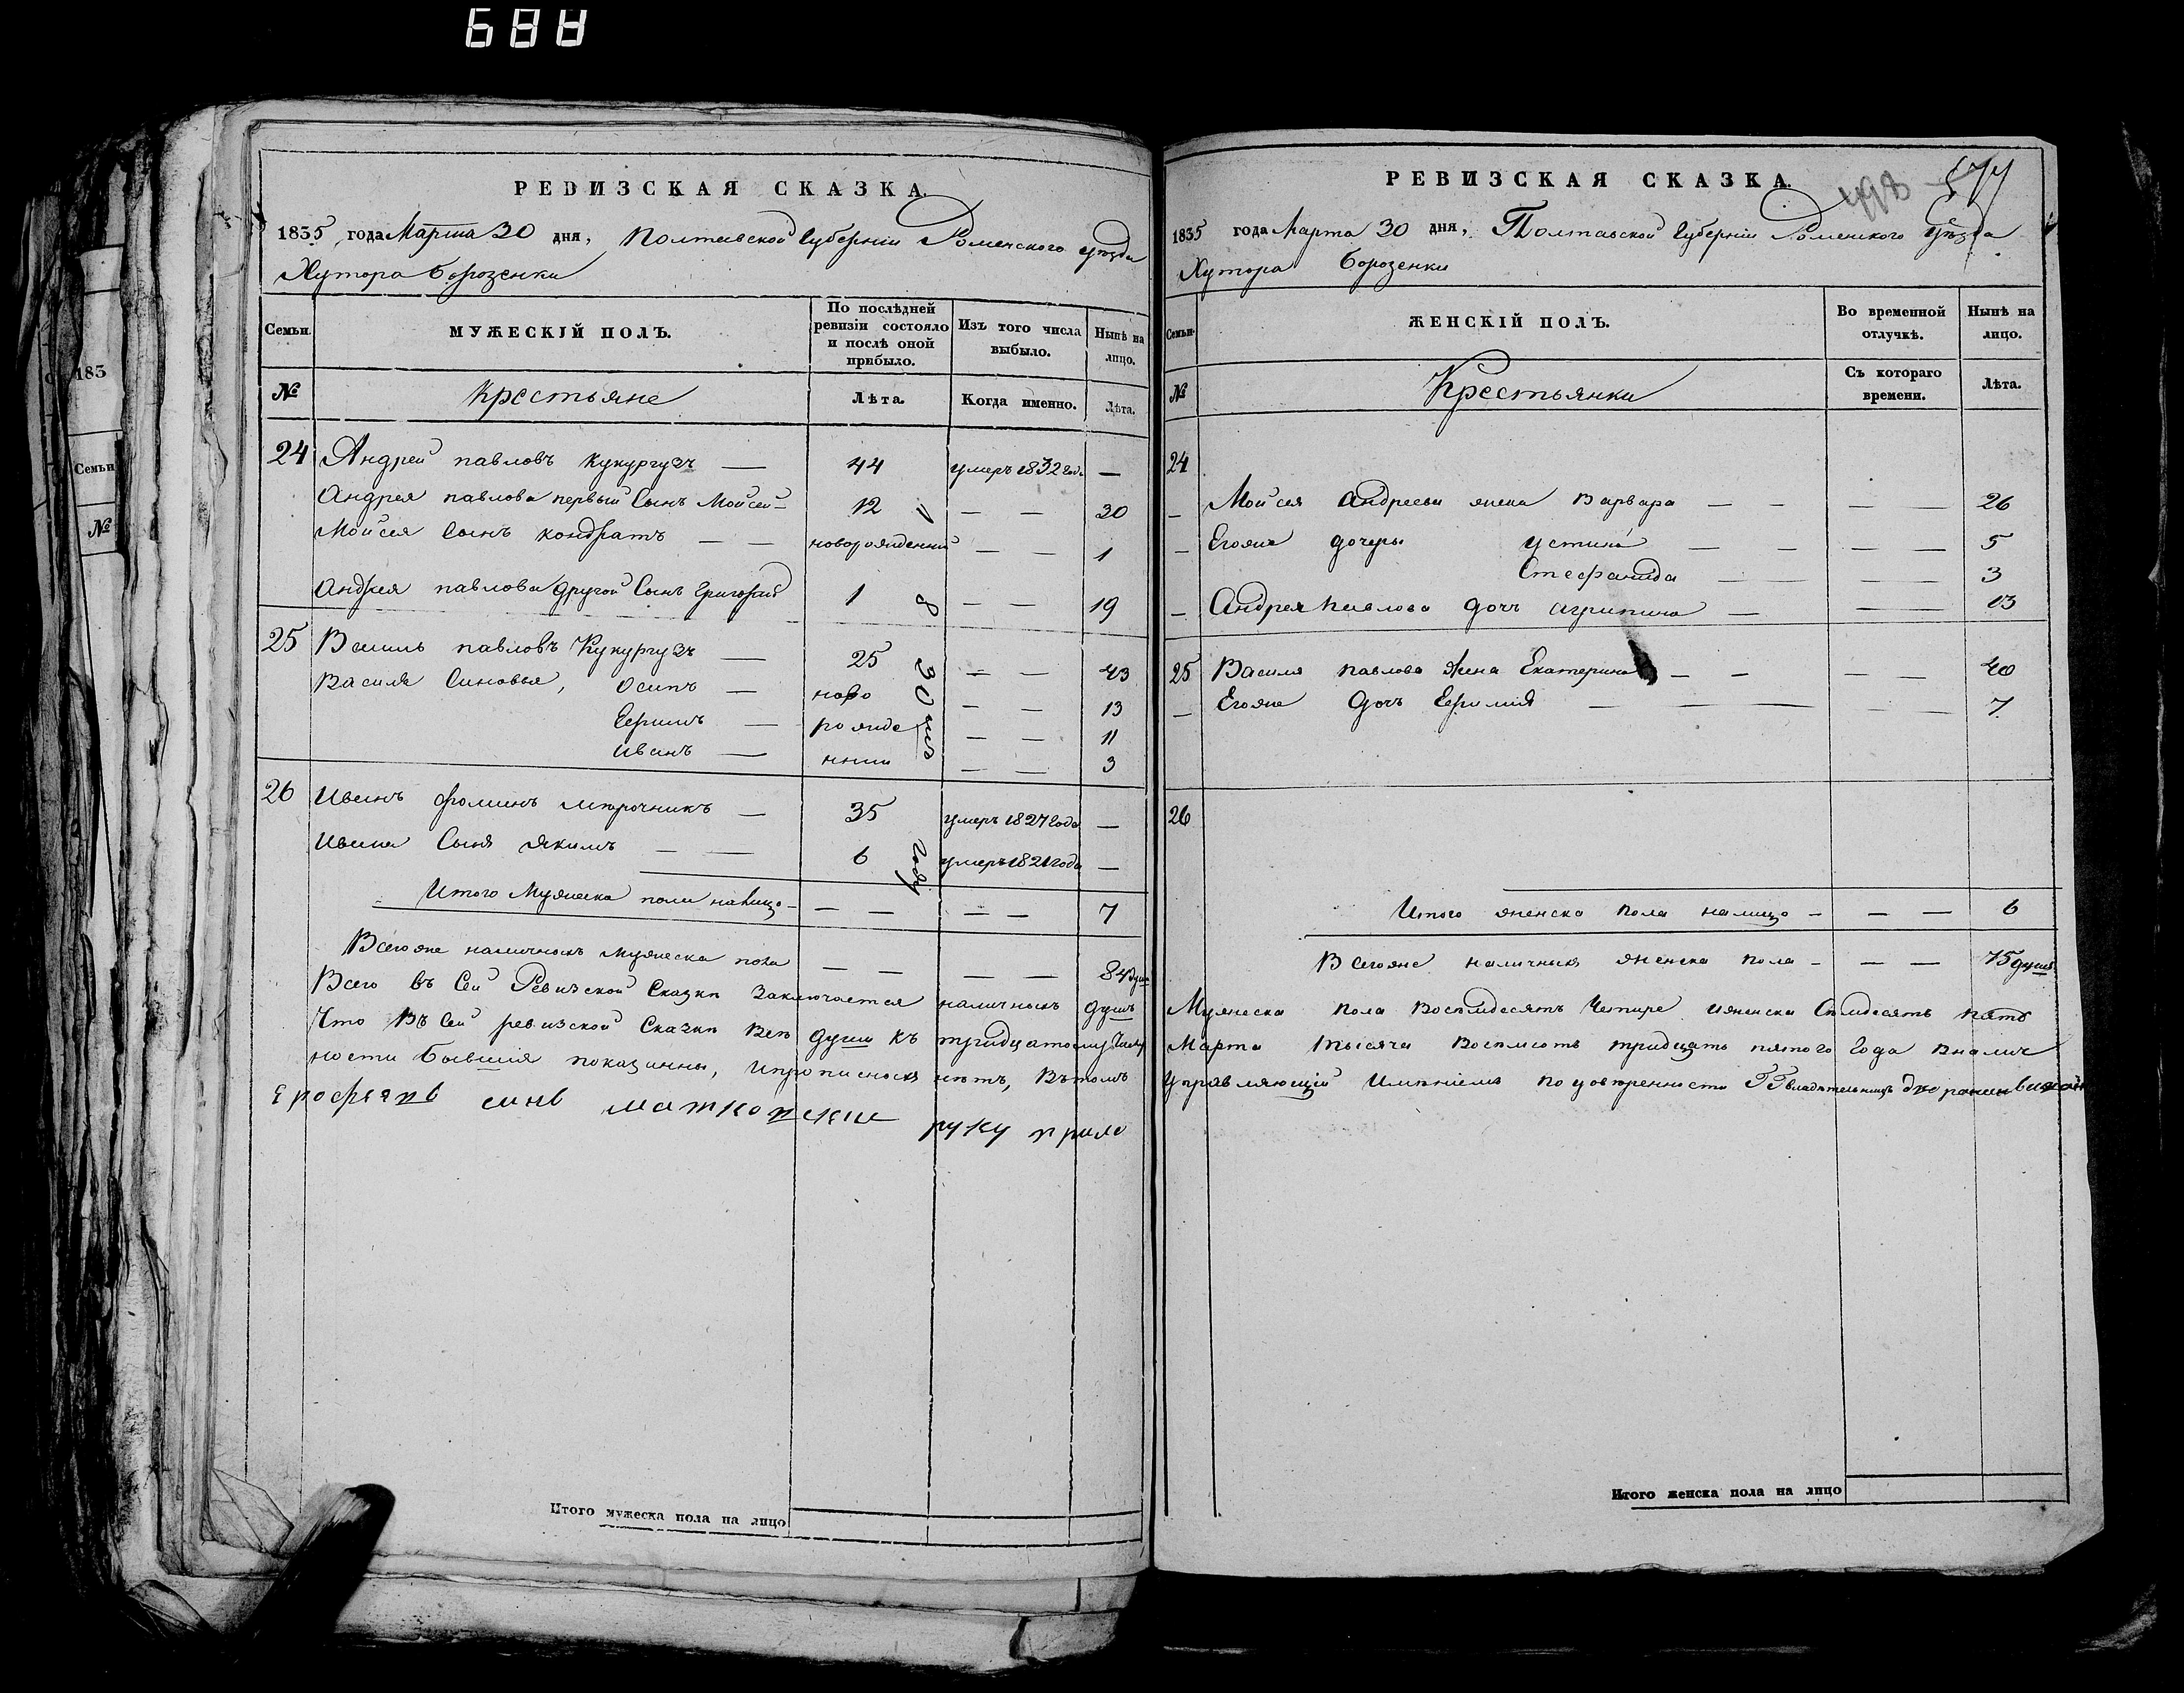 688
РЕВИЗСКАЯ СКАЗКА.
1835 года Марта 30 дня, Полтавской Губерніи Роменского уезда
Хутора Борозенки
Семьи.
МУЖЕСКІЙ ПОЛЪ.
По послѣдней ревизіи состояло и послѣ оной прибыло.
Изъ того числа выбыло.
Нынѣ на лицо.
№
Крестьяне
Лѣта.
Когда именно.
Лѣта.
24 Андрей павловъ Кукургузъ — 44 умеръ 1832 года —
Андрея павлова первый Сынъ Мойсей — 12 — — 30
Мойсея Сынъ кондратъ — — новорожденний — — 1
Андрея павлова другой Сынъ Григорий 1 — — 19
25 Василь павловъ Кукургузъ — 25 — — 43
Василя Синовья, Осипъ — ново — — 13
Ефимъ — рожде — — 11
иванъ — нныи — — 3
1 8 30 году
26 Иванъ фоминъ мирочникъ — 35 умеръ 1827 года —
Ивана Сынъ Якимъ — — 6 умеръ 1821 года —
Итого Мужеска пола налицо — — — — — 7
Всегоже наличныхъ мужеска пола — — — — 84 душ
Всего въ Сей Ревизской Сказки Заключается наличныхъ душъ
Что Въ Сей ревизской Сказки Все души къ тридцатому Числу
ности бывшія показанны, ипрописныхъ нѣтъ, Вътомъ
Ерофеявъ синъ матковскии руку прило
Итого мужеска пола на лицо
РЕВИЗСКАЯ СКАЗКА.
498
577
1835 года Марта 30 дня, Полтавской Губерніи Роменского Уезда
Хутора Борозенки
Семьи.
ЖЕНСКІЙ ПОЛЪ.
Во временной отлучкѣ.
Нынѣ на лицо.
№
Крестьянки
Съ котораго времени.
Лѣта.
24
— Мойсея Андреева жена Варвара — — — — 26
— Егоже дочеры устина — — — — 5
Стефанида — — — — 3
— Андрея Павлова дочъ агрипина — — — 13
25 Василя павлова жена Екатерина — — — — 40
— Егоже дочъ Ефимия — — — — — 7
26
Итого женска пола налицо — — — 6
Всегоже наличныхъ женска пола — — — 75 душъ
Мужеска пола Восемдесятъ Четире иженска Семдесятъ пять
Марта тысяча Восемсотъ тридцать пятого Года Вналич
Управляющій Имѣніемъ по уверенности ГГ владѣтельницъ дворянъ
Итого женска пола на лицо
183
Семьи
№